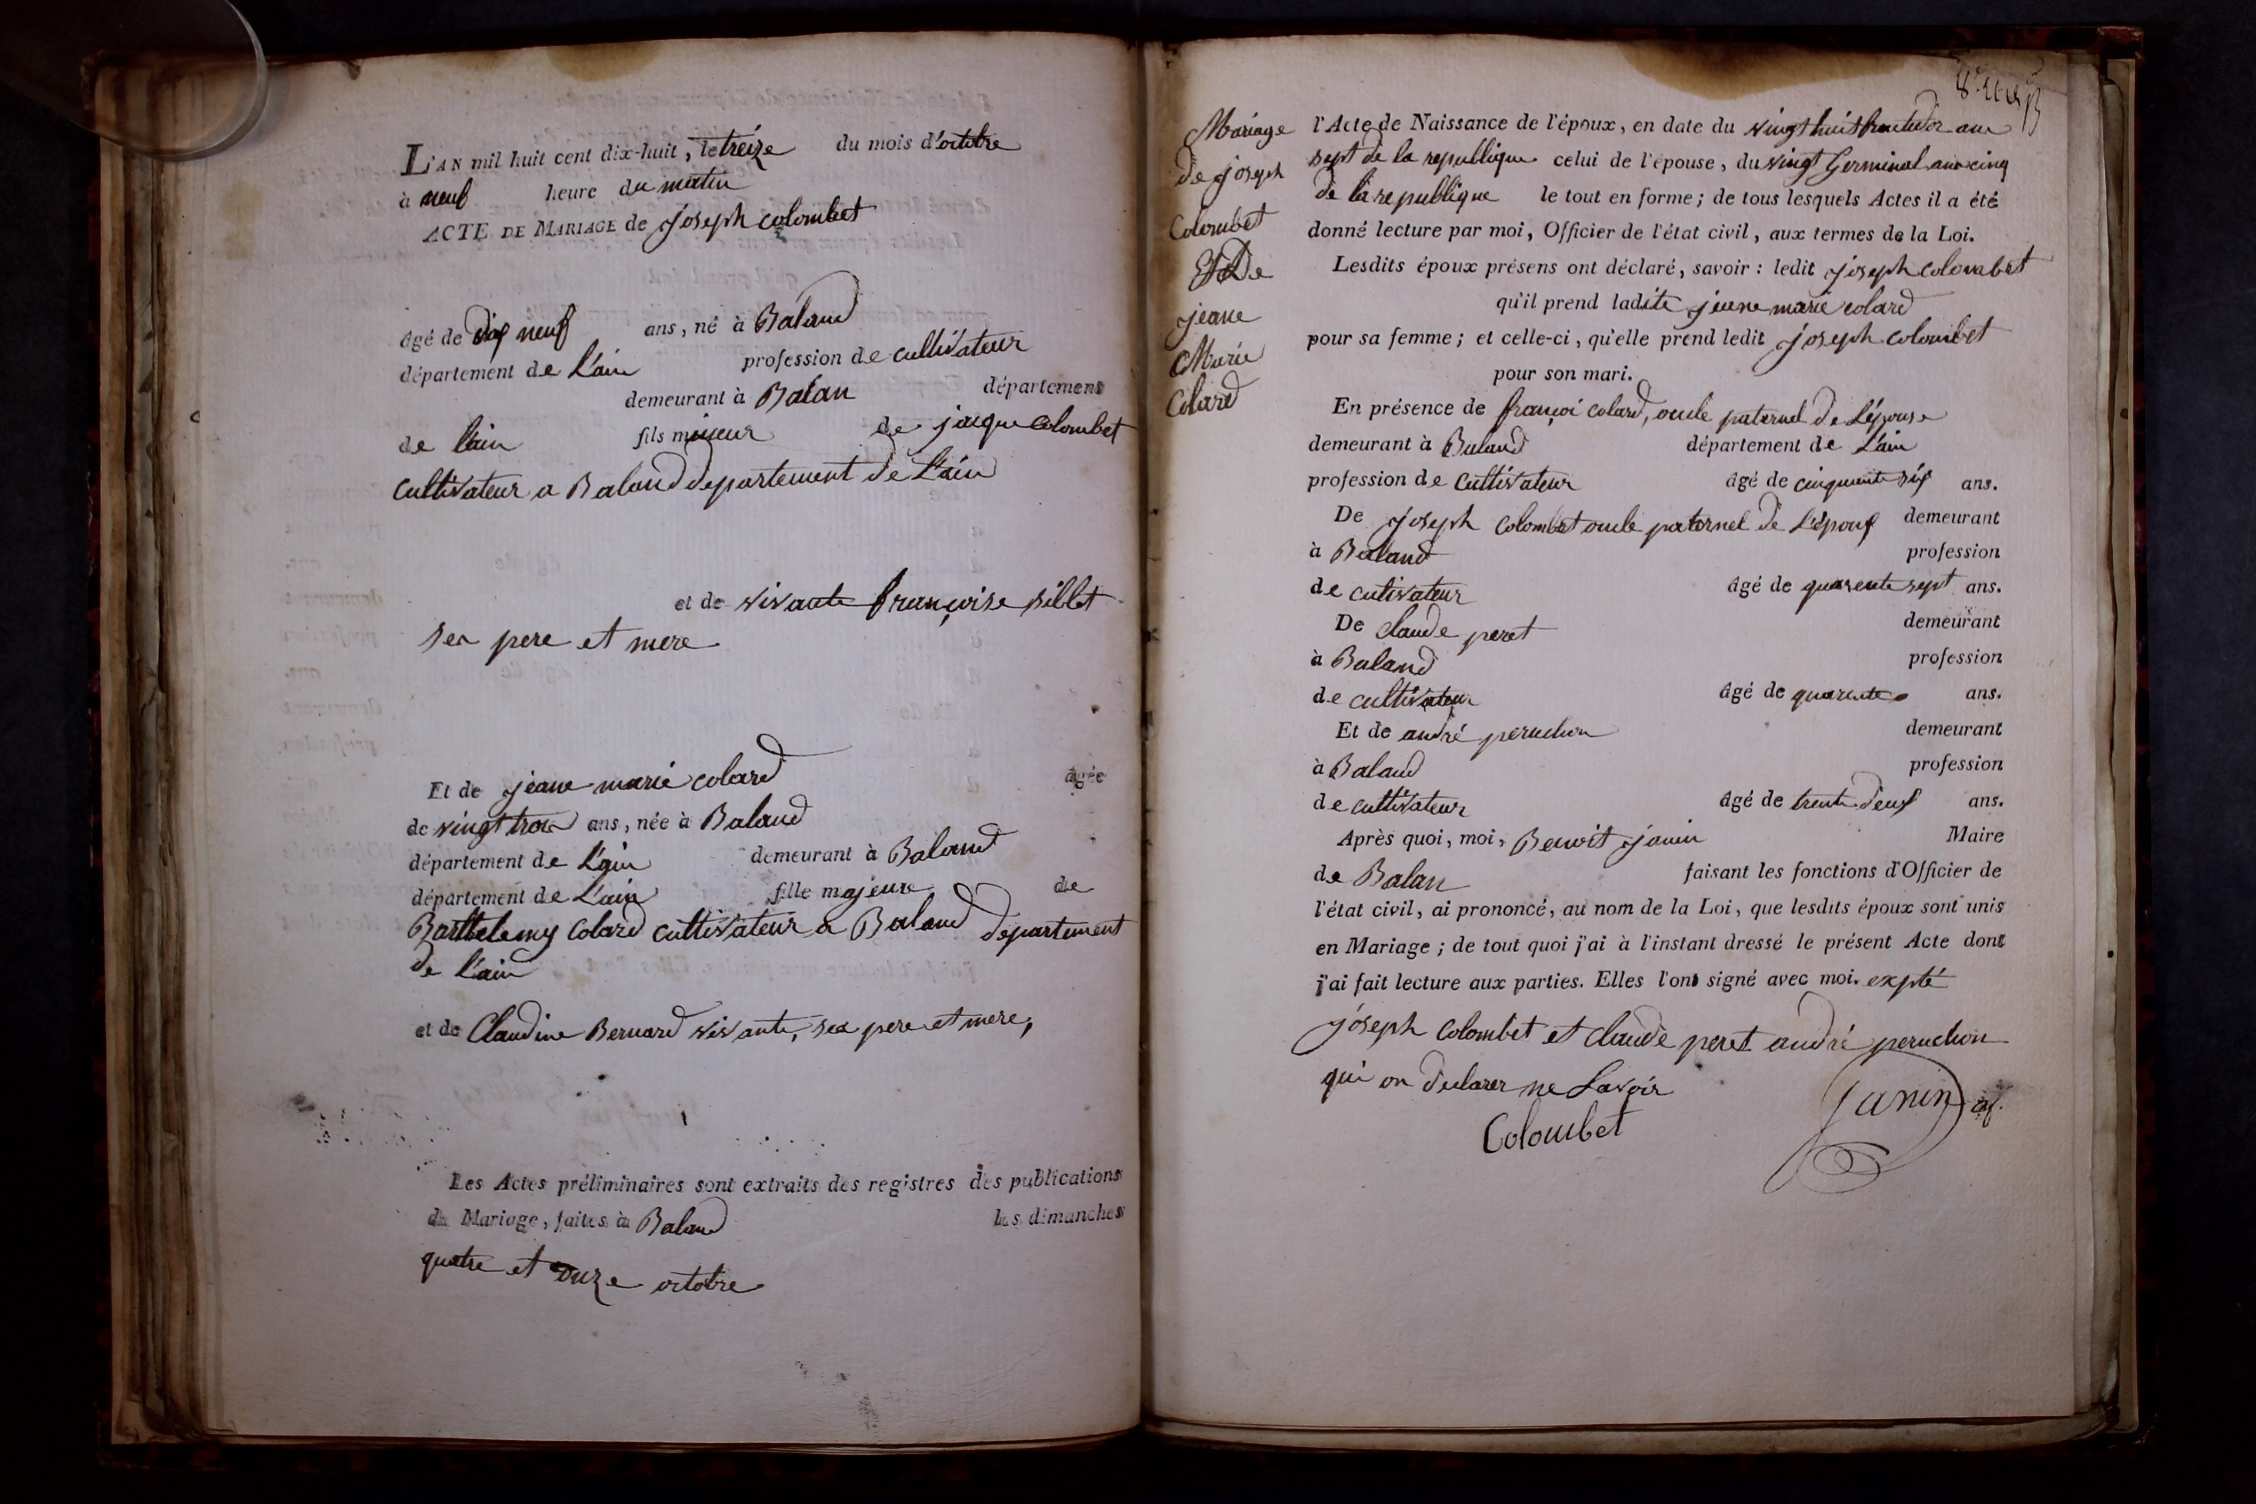 L'AN mil huit cent dix-huit, le treize du mois d'octobre
à neuf heure du matin
ACTE DE MARIAGE de joseph colombet
âgé de dix neuf ans, né à Baland
département de L'ain profession de cultivateur
demeurant à Balan département
de l'ain fils mineur de jacque colombet
cultivateur a Baland departement de L'ain
et de vivante françoise billet
ses pere et mere
Et de jeane marie colard âgée
de vingt trois ans, née à Baland
département de L'ain demeurant à Baland
département de L'ain fille majeure de
Barthelemy Colard cultivateur a Baland departement
de L'ain
et de Claudine Bernard vivante, ses pere et mere,
Les Actes préliminaires sont extraits des registres des publications
de Mariage, faites à Baland les dimanches
quatre et onze octobre
Mariage
de joseph
Colombet
Et De
jeane
Marie
Colard
l'Acte de Naissance de l'époux, en date du vingt huit fructidor an
sept de la republique celui de l'épouse, du vingt Germinal an cinq
de la republique le tout en forme; de tous lesquels Actes il a été
donné lecture par moi, Officier de l'état civil, aux termes de la Loi.
Lesdits époux présens ont déclaré, savoir : ledit joseph colombet
qu'il prend ladite jeane marie colard
pour sa femme; et celle-ci, qu'elle prend ledit joseph colombet
pour son mari.
En présence de françoi colard, oncle paternel de L'épouse
demeurant à Baland département de L'ain
profession de cultivateur âgé de cinquante six ans.
De joseph colombet oncle paternel de L'époux demeurant
à Baland profession
de cutivateur âgé de quarente sept ans.
De claude peret demeurant
à Baland profession
de cultivateur âgé de quarente ans.
Et de andré peruchon demeurant
à Baland profession
de cultivateur âgé de trente deux ans.
Après quoi, moi, Benoit janin Maire
de Balan faisant les fonctions d'Officier de
l'état civil, ai prononcé, au nom de la Loi, que lesdits époux sont unis
en Mariage; de tout quoi j'ai à l'instant dressé le présent Acte dont
j'ai fait lecture aux parties. Elles l'ont signé avec moi. expté
joseph colombet et claude peret andré peruchon
qui on declarer ne Savoir
Colombet Janin